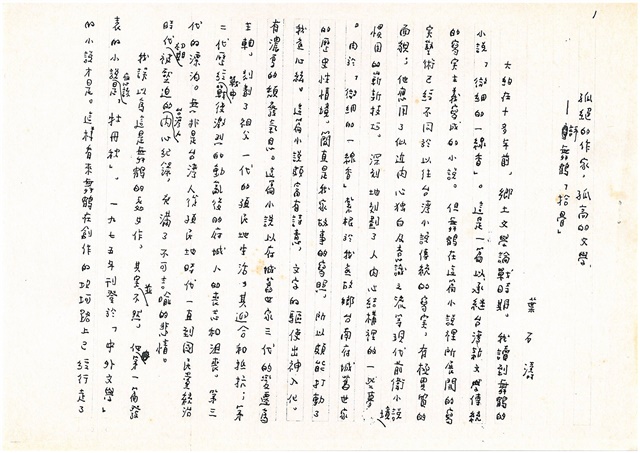 1
孤絕的作家,孤高的文學
——評舞鶴「拾骨」
葉石濤
大約在十多年前,鄉土文學論戰時期,我讀到舞鶴的
小說,「微細的一線香」。這是一篇以承繼台灣新文學傳統
的寫實主義寫成的小說。但舞鶴在這篇小說裡所展開的寫
實藝術已經不同於以往台灣小說傳統的寫實,有極異質的
面貌;他應用了似近內心獨白及意識之流等現代前衛小說
慣用的嶄新技巧,深刻地刻劃了人內心結構裡的一些夢境
。由於「微細的一線香」紮根於我在故鄉台南府城舊世家
的歷史性情境,簡直是我家故事的寫照,所以頗能打動了
我在心絃。這篇小說頗富有詩意,文字的驅使出神入化。
有濃重的頹廢氣息。這篇小說以府城舊世家三代的變遷為
主軸,刻劃了祖父一代的殖民地生活,其迎合和抵抗;第
二代歷經戰中戰後激烈的動亂後的府城人的喪志和沮喪。第三
代的漂泊。無非是台灣人從殖民地時代一直到國民黨統治
時代初期被壓迫的台灣人內心紀錄,充滿了不可言喻的悲情。
我誤以為這是舞鶴的處女作。其實並不然,他第一篇發
表的小說應該是「牡丹秋」,一九七五年刊登於「中外文學」
的小說才是。這樣看來舞鶴在創作的坎坷路上已經行走了